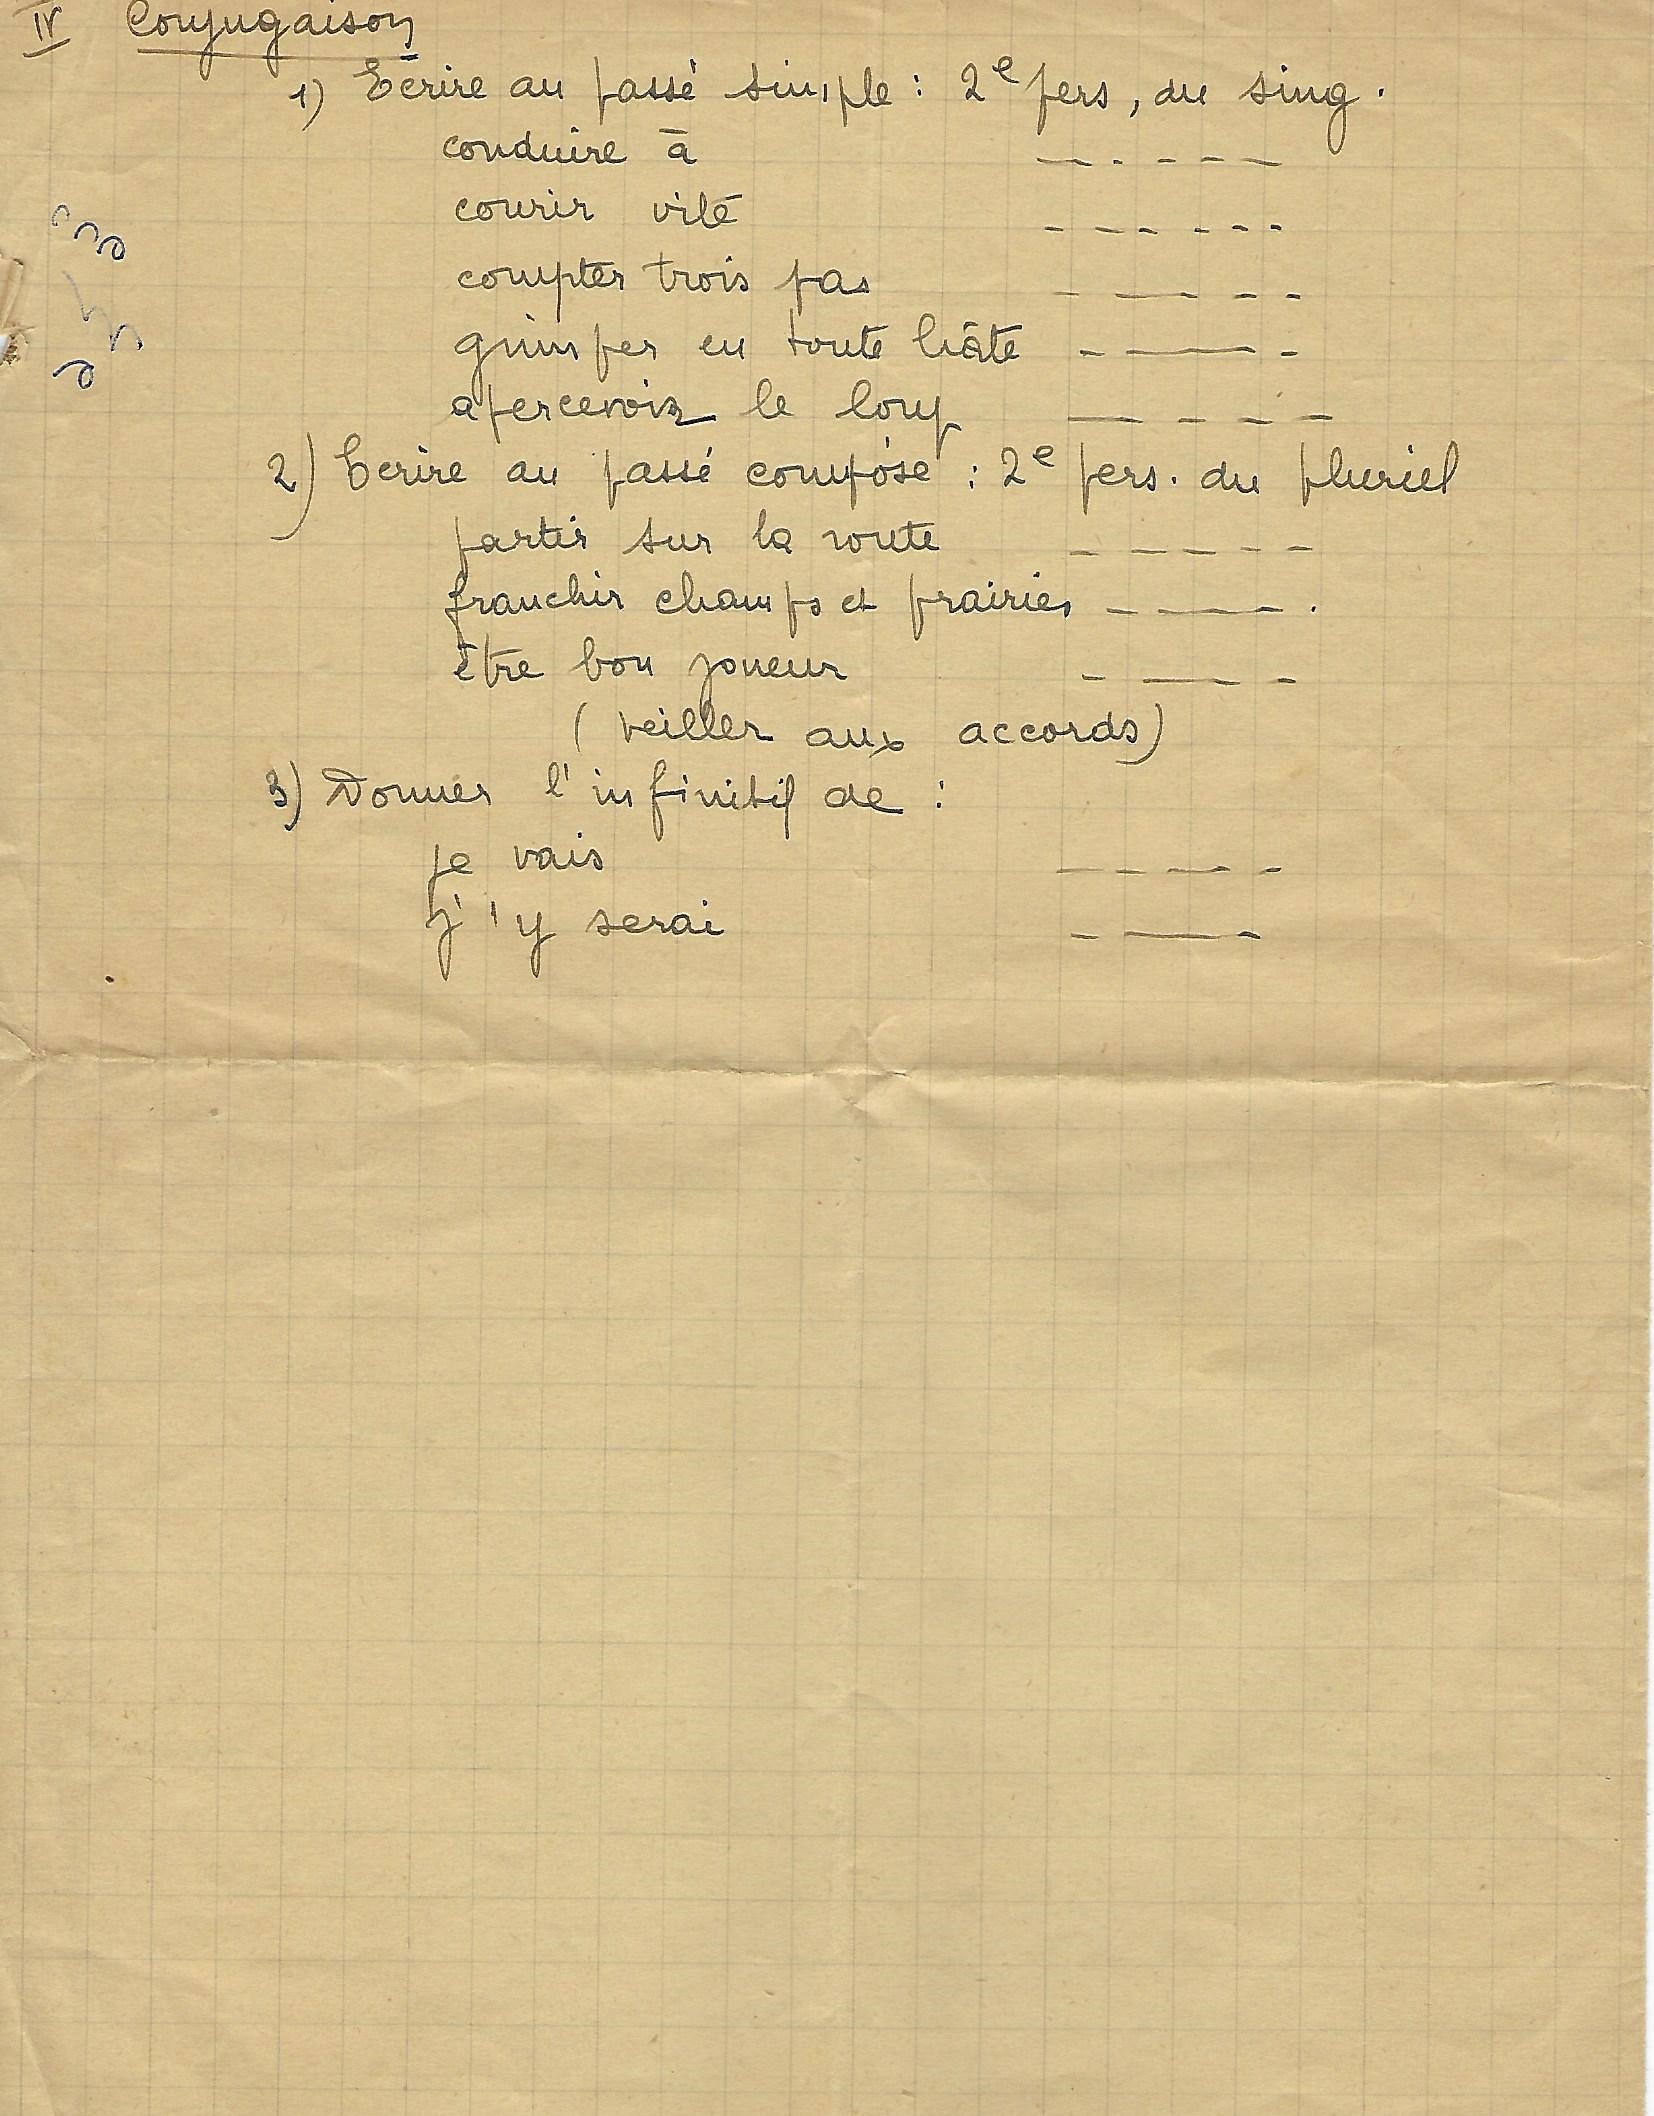 IV Conjugaison
1) Ecrire au passé simple : 2e pers, du sing.
conduire à - - - - -
courir vite - - - - - -
compter trois pas - - - - -
grimper en toute hâte - - - -
apercevoir le loup - - - - -
2) Ecrire au passé composé : 2e pers. du pluriel
partir sur la route - - - - -
franchir champs et prairies - - - - .
être bon joueur - - - -
(veiller aux accords)
3) Donner l'infinitif de :
je vais - - - - -
j'y serai - - - -